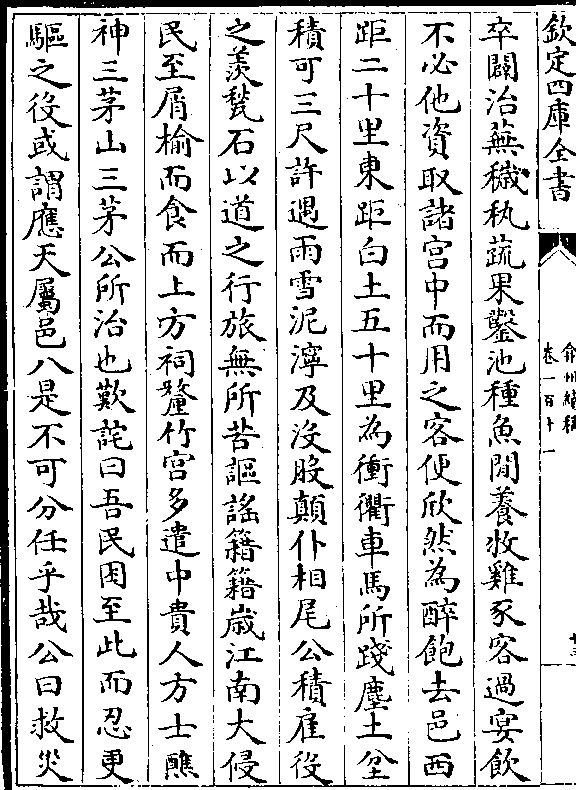 欽定四庫全書
卒闢治蕪穢執蔬果鑿池種魚閒養牧雞豕客過宴飲
不必他資取諸宫中而用之客便欣然為醉飽去邑西
距二十里東距白土五十里為衝衢車馬所踐塵土坌
積可三尺許遇雨雪泥濘及沒股顛仆相尾公積雇役
之羨甃石以道之行旅無所苦謳謠籍籍歲江南大侵
民至屑榆而食而上方祠釐竹宫多遣中貴人方士醮
神三茅山三茅公所治也歎詫曰吾民困至此而忍更
驅之役或謂應天屬邑八是不可分任乎哉公曰救災